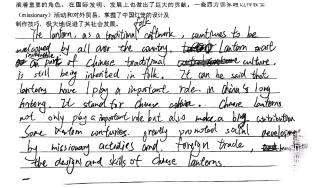 演着重要的角色，在国际发明、发展上也做出了巨大的贡献。一些西方领
（missionary）活动和对外贸易，掌握了中国灯笼的设计及
制作技巧，极大地促进了其社会发展。
The lantern, as a traditional folk artwork, continues to be
welcomed by all over the country. Lantern most
part of Chinese traditional culture,
is still being inherited in folk. It can be said that
lanterns have play a important role in China's long
history. It stand for Chinese Chinese lanterns
not only play a important role but also make a big contribution
Some Western greatly promoted social development
by missionary activities and foreign trade
the designs and skills of Chinese lanterns.